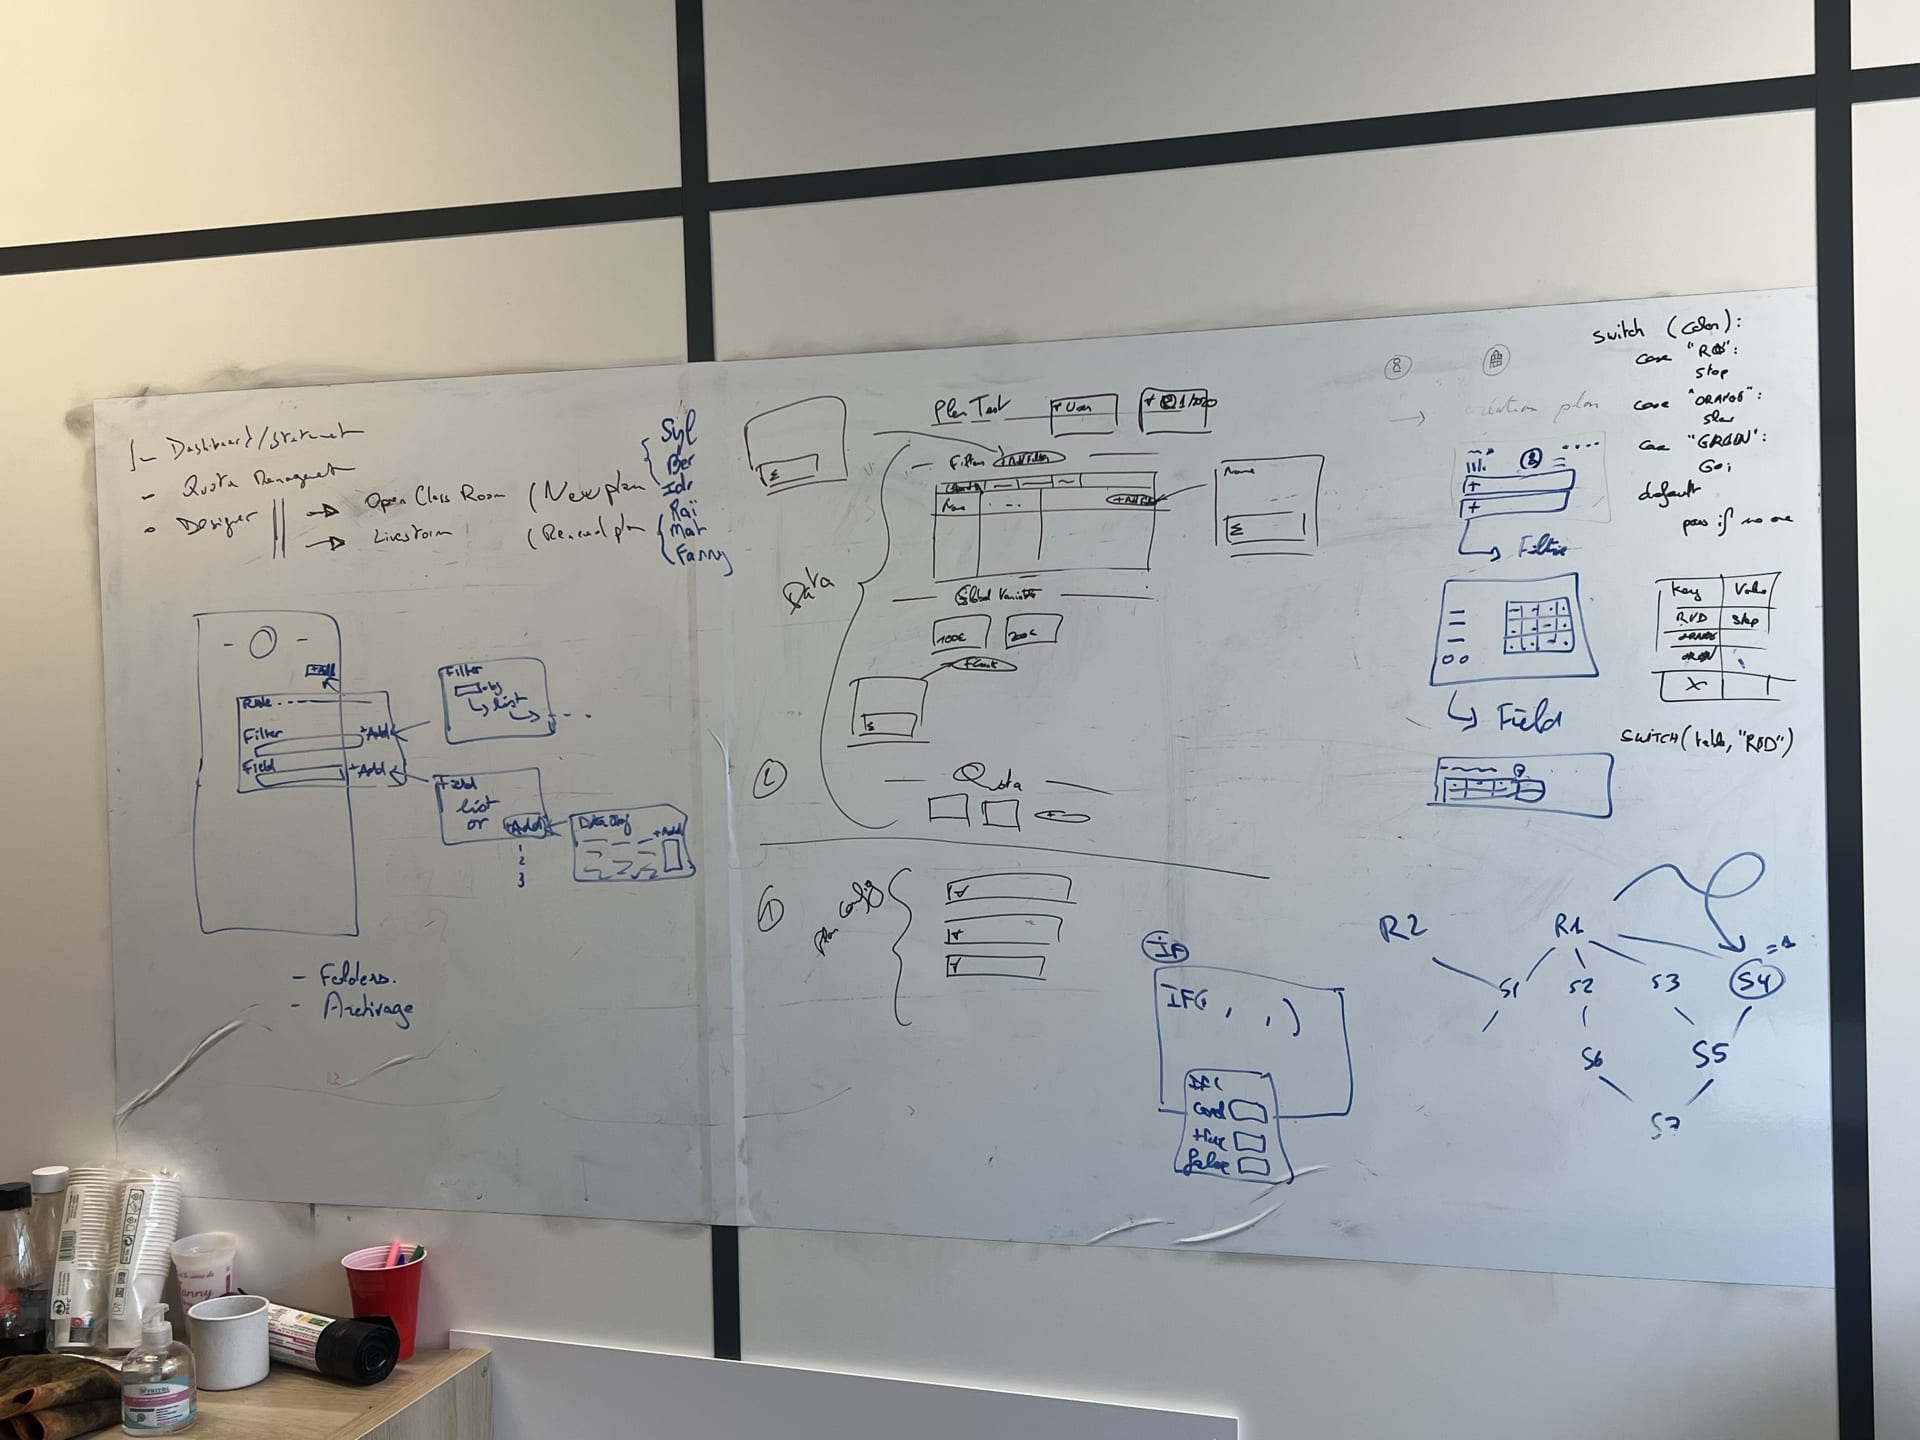 Dashboard/Statement
- Quota Management
Designer
Open Class Room (New plan
Livestorm (Renewed plan
Syl
Ber
Idr
Raï
Mat
Fanny
+Add
Rule
Filter
+Add
Field
+Add
Filter
list
Field
list
or
+Add
1
2
3
Data Obj
+Add
- Folders.
- Archivage
Plan Test
User
1/2020
Filters
+Add Filter
Name
Name
Data
Global Variable
100€
200€
Quota
2
1
plan config
IF
IF( , , )
IF(
cond
true
false
création plan
Filtre
Field
switch (color):
case "RED":
stop
case "ORANGE":
slow
case "GREEN":
Go;
default
pass if no one
Key
Value
RED
Stop
ORANGE
GREEN
X
SWITCH(table, "RED")
R2
R1
S1
S2
S3
S4
S6
S5
S7